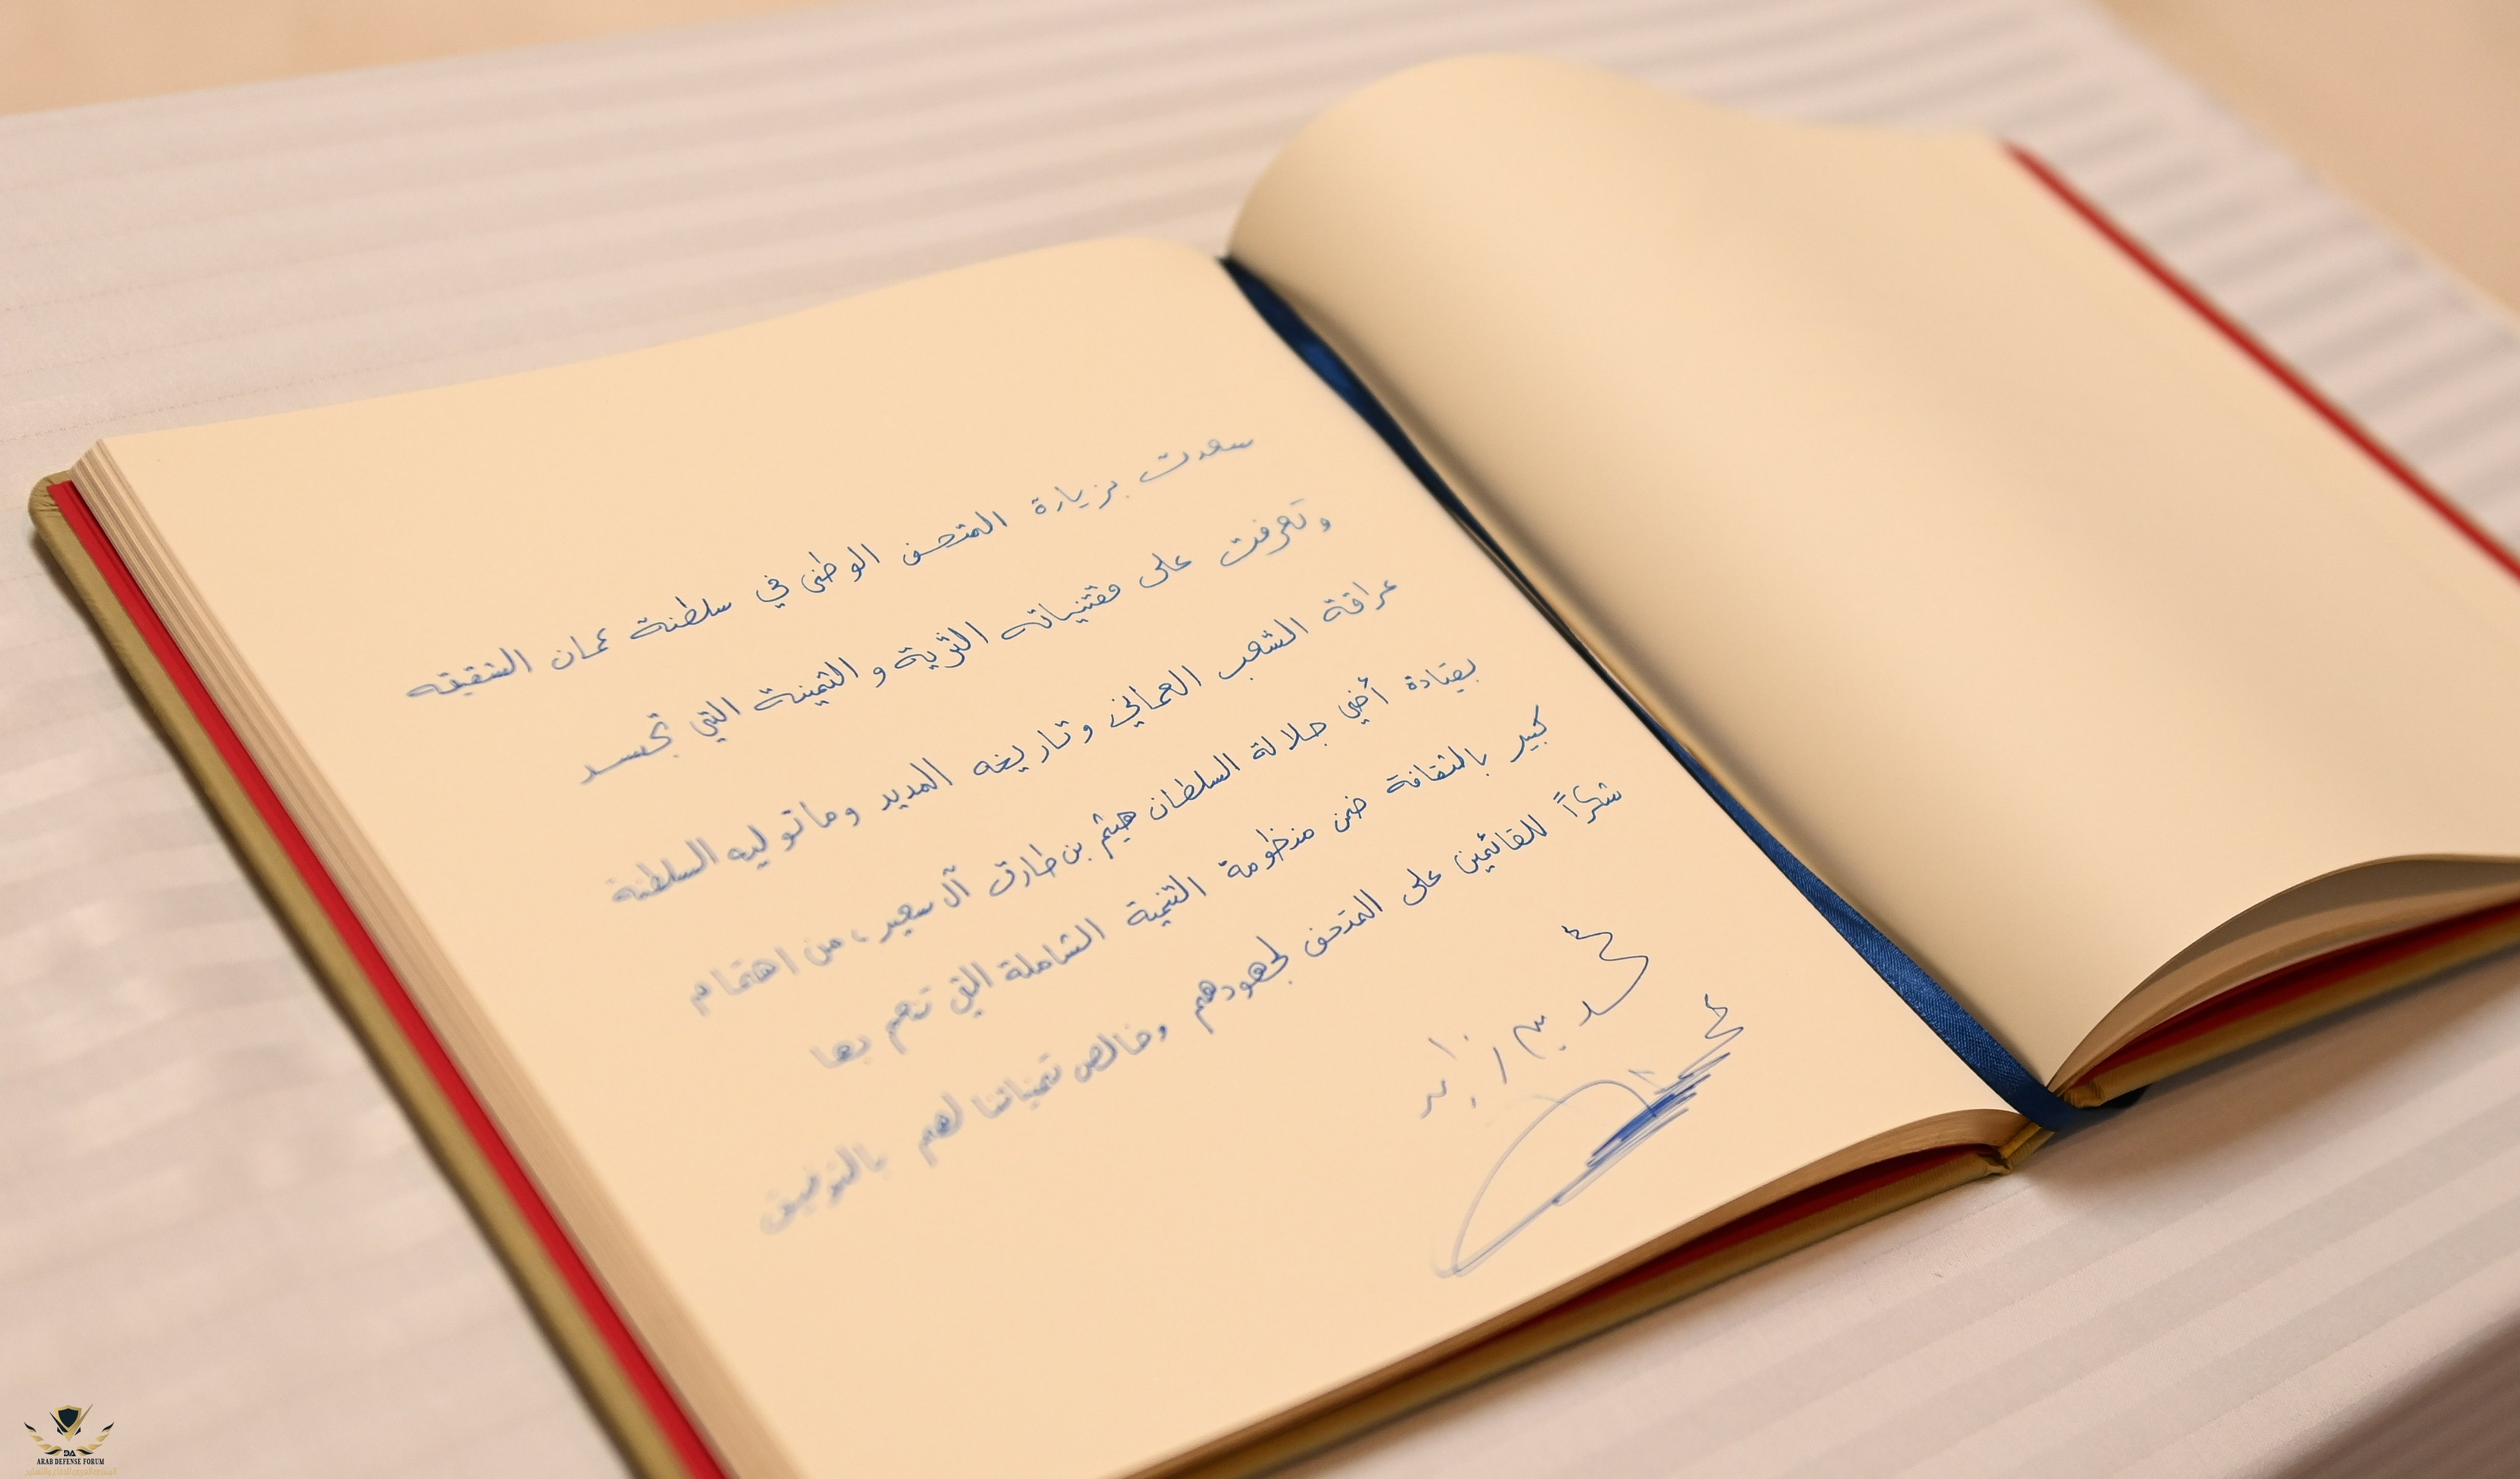 سعدت بزيارة المتحف الوطني في سلطنة عمان الشقيقه
وتعرفت على مقتنياته الثرية و الثمينة التي تجسد
عراقة الشعب العماني وتاريخه المديد وما توليه السلطنة
بقيادة أخي جلالة السلطان هيثم بن طارق آل سعيد ، من اهتمام
كبير بالثقافة ضمن منظومة التنمية الشاملة التي تهم بها
شكراً للقائمين على المتحف لجهودهم وخالص تمنياتنا لهم بالتوفيق
محمد بن زايد
DA
ARAB DEFENSE FORUM